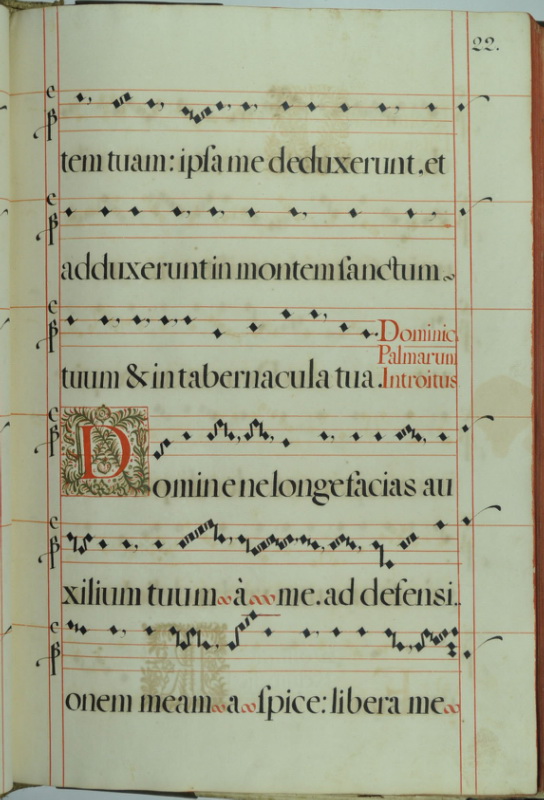 22.
tem tuam: ipſa me deduxerunt. et
adduxerunt in montem ſanctum
tuum & in tabernacula tua.
Dominic
Palmarum
Introitus
Domine ne longe facias au
xilium tuum à me. ad defensi..
onem meam a ſpice: libera me